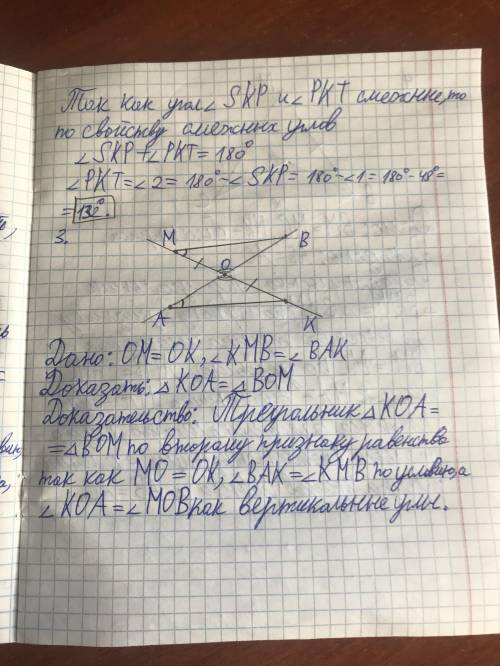 Так как угол ∠ SKP и ∠ PKT смежные, то
по свойству смежных углов
∠SKP + ∠PKT = 180°
∠PKT = ∠2 = 180° - ∠SKP = 180° - ∠1 = 180° - 48° =
= 132°.
3.
M
B
O
A
K
Дано: OM = OK, ∠KMB = ∠BAK
Доказать: △KOA = △BOM
Доказательство: Треугольник △KOA =
= △BOM по второму признаку равенства
так как MO = OK, ∠BAK = ∠KMB по условию, а
∠KOA = ∠MOB как вертикальные углы.